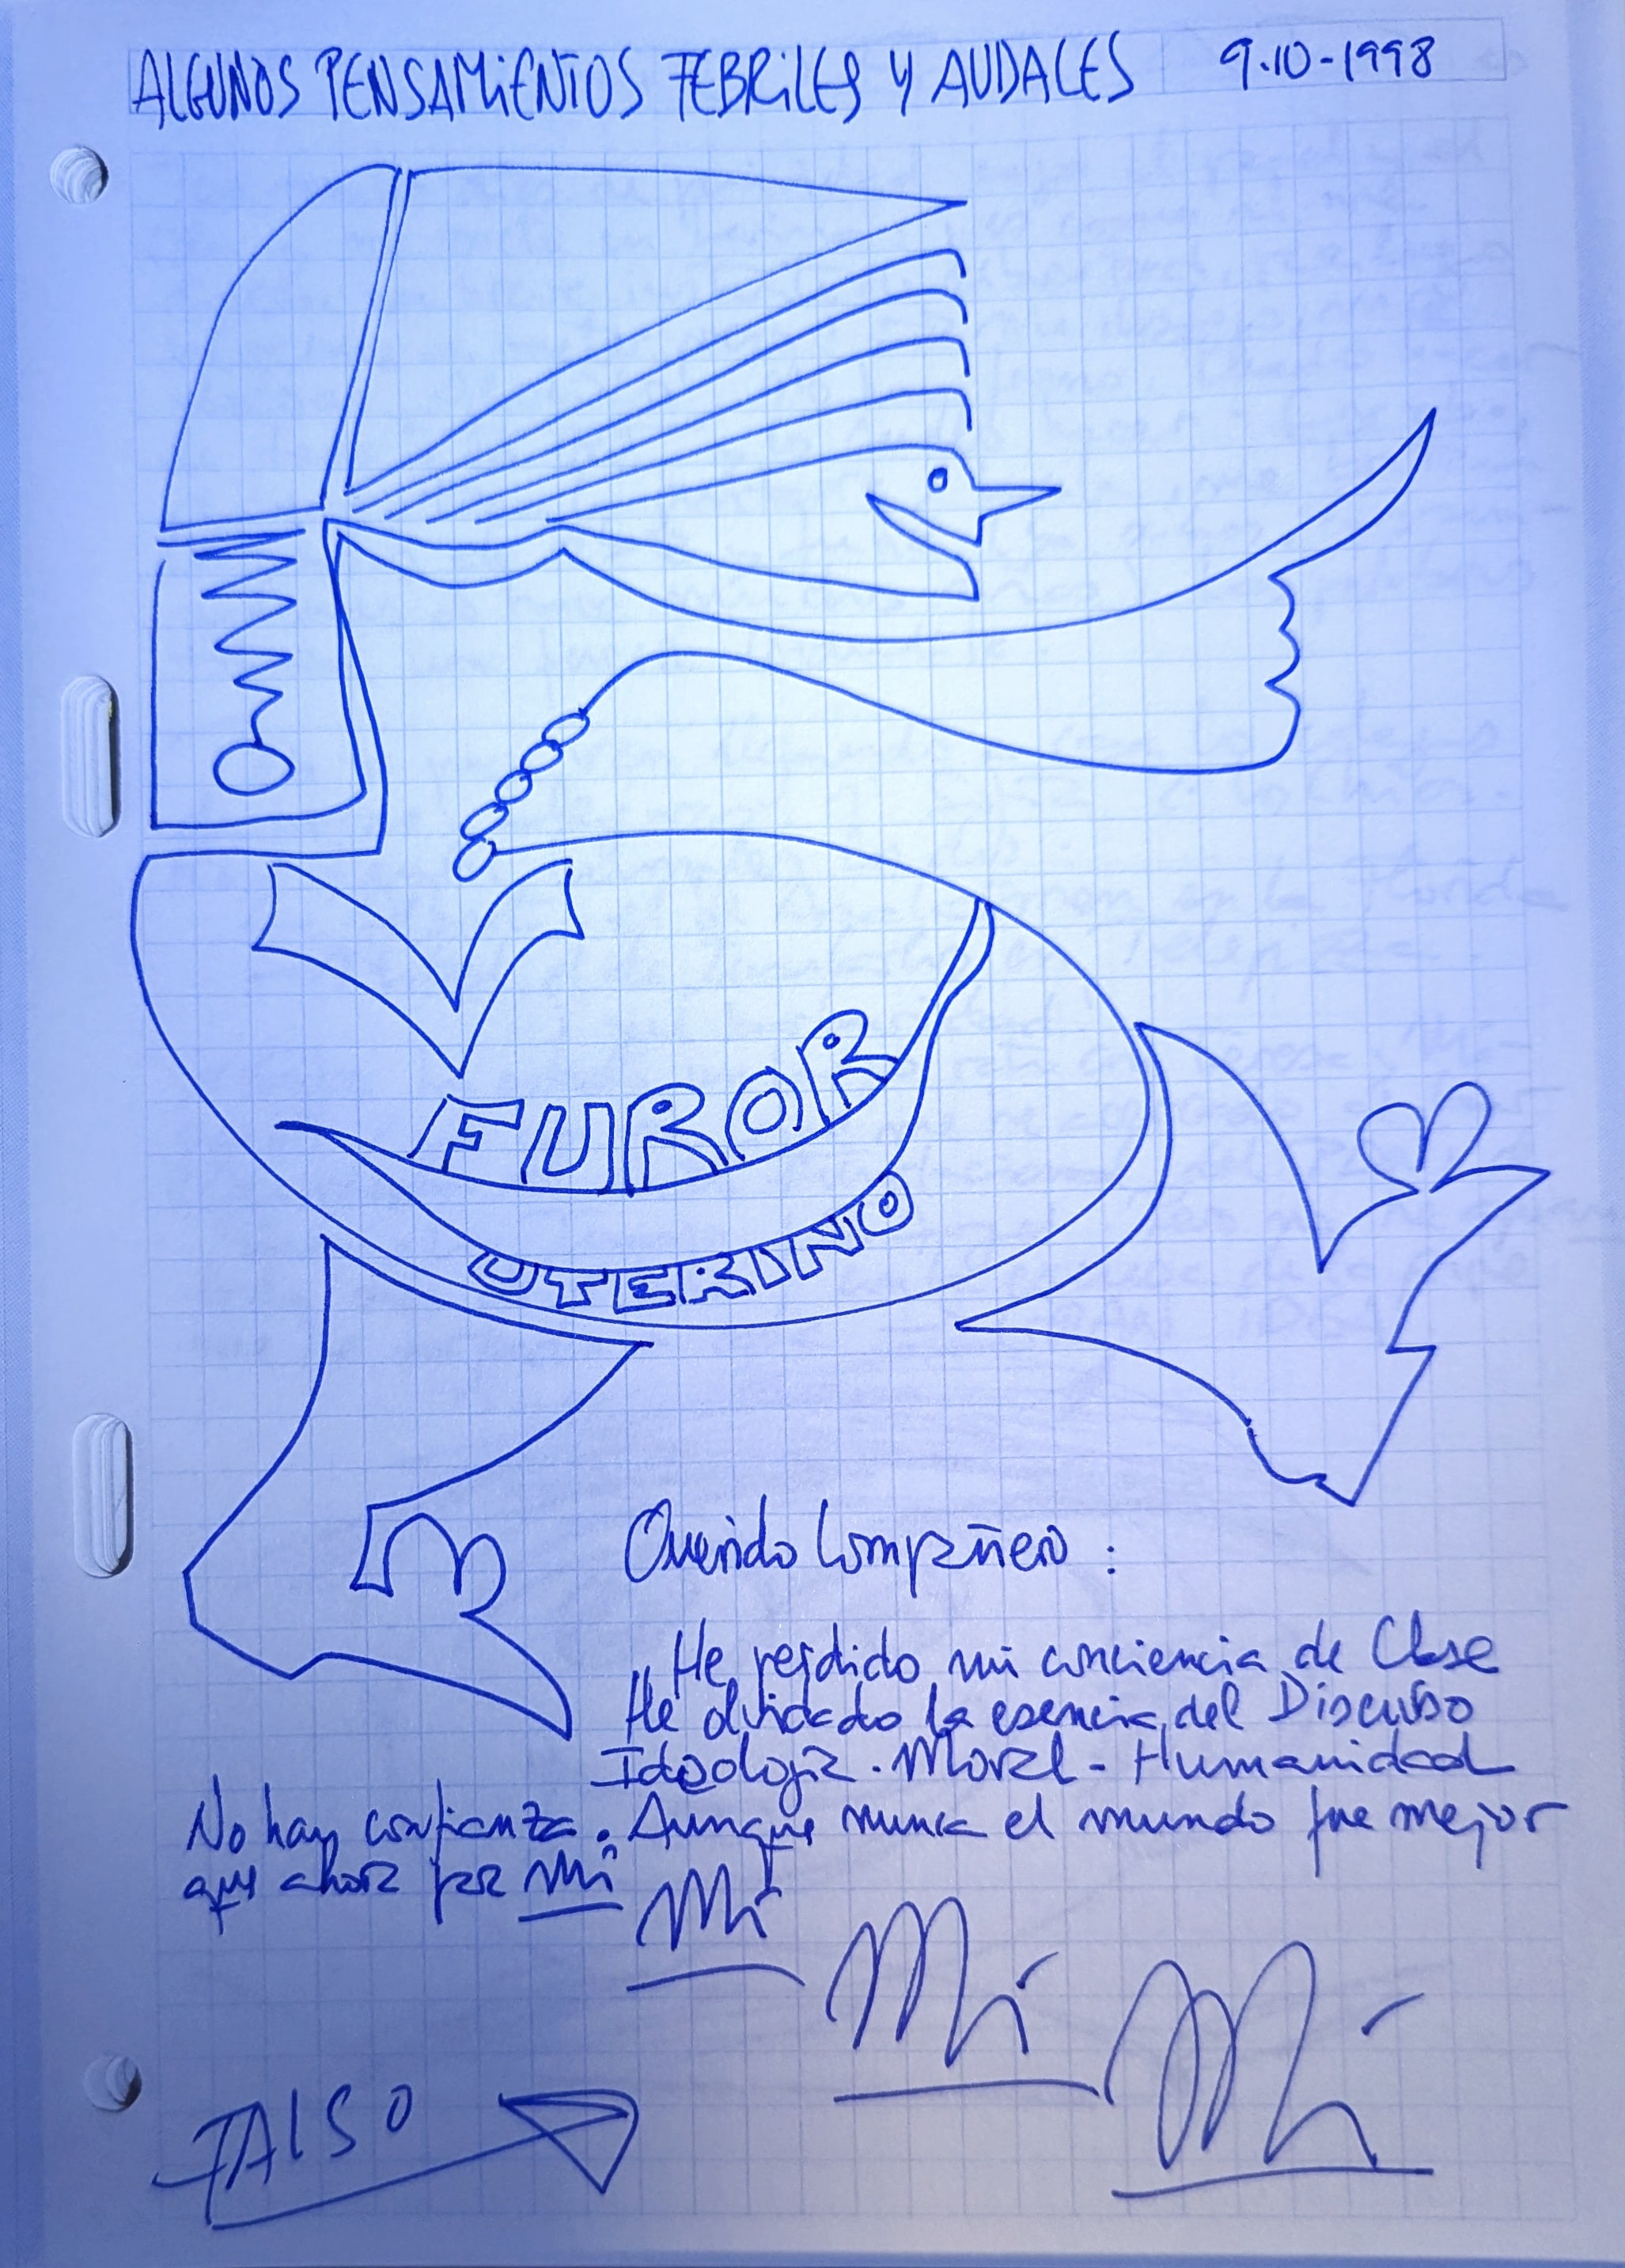 ALGUNOS PENSAMIENTOS FEBRILES Y AUDALES 9.10-1998
FUROR
UTERINO
Querido Compañero:
He perdido mi conciencia de Clase
He olvidado la esencia del Discurso
Ideología. Moral - Humanidad
No hay confianza. Aunque nunca el mundo fue mejor
que ahora para Mí
Mí
Mí
Mí
FALSO